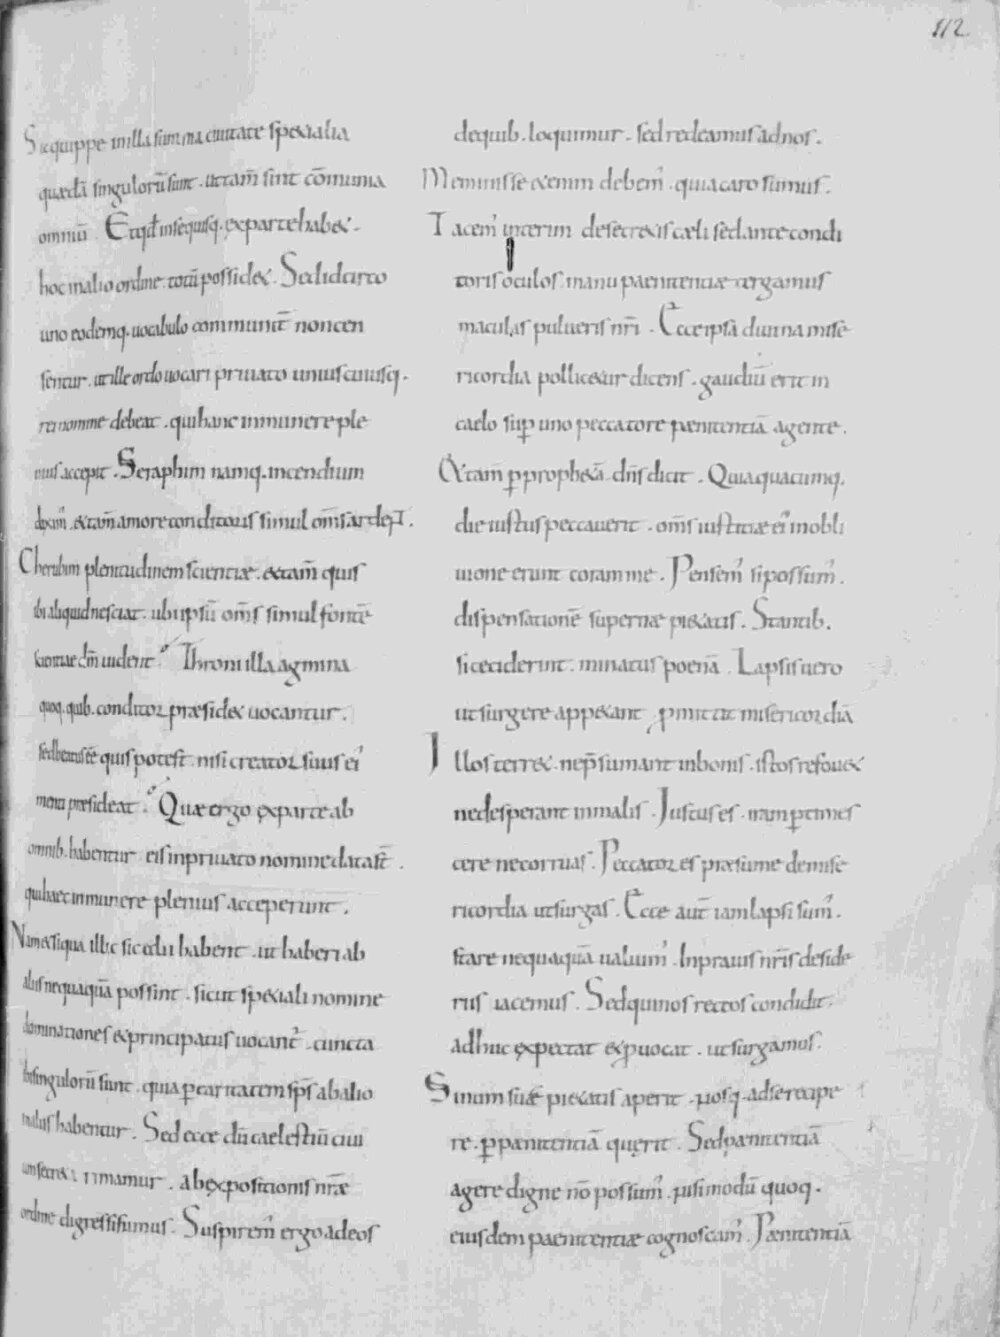 112
Sic quippe in illa summa ciuitate spetialia
quædā singulorū sunt . ut tam̄ sint cōmunia
omniū . Et qđ in se quisq. ex parte habet .
hoc in alio ordine totū possidet . Sed idcirco
uno eodemq. uocabulo communit̄ non cen
sentur . ut ille ordo uocari priuato unius cuiusq.
rei nomine debeat . qui hanc in munere ple
nius accepit . Seraphim namq. incendium
diximꝰ . et tam̄ amore conditoris simul om̄s ardeNT .
Cherubim plenitudinem scientiæ . et tam̄ quis
ibi aliquid nesciat . ubi ipsū om̄s simul fontē
scientiae dm̄ uident ? Throni illa agmina
quoq. quib. conditor præsidet uocantur .
sed beatus eē quis potest . nisi creator suus ei'
menti præsideat ? Quæ ergo ex parte ab
omnib. habentur . eis in priuato nomine data st̄ .
qui haec in munere plenius acceperunt .
Nam et siqua illic sic alii habent . ut haberi ab
aliis nequaquā possint . sicut spetiali nomine
dominationes et principatus uocant' . cuncta
ibi singulorū sunt . quia p̲ caritatem sp̄s ab alio
in aliis habentur . Sed ecce dū caelestiū ciui
um secreta rimamur . ab expositionis nr̄æ
ordine digressi sumus . Suspirem' ergo ad eos
de quib. loquimur . sed redeamus ad nos .
Meminisse etenim debem' . quia caro sumus .
Tacem' interim de secretis cæli sed ante condi
toris oculos . manu paenitentiæ tergamus
maculas pulueris nr̄i . Ecce ipsa diuina mise
ricordia pollicetur dicens . gaudiū erit in
caelo sup̲ uno peccatore pænitentiā agente .
Et tam̄ p̲ prophetā dn̄s dicit . Quia quacumq.
die iustus peccauerit . om̄s iustitiæ ei' in obli
uione erunt coram me . Pensem' si possum' .
dispensationē supernæ pietatis . Stantib.
si ceciderint . minatus poenā . Lapsis uero
ut surgere appetant p̲mittit misericordiā
Illos terret . ne p̄sumant in bonis . istos refouet
ne desperent in malis . Iustus es . iram p̲times
cere ne corruas . Peccator es præsume de mise
ricordia ut surgas . Ecce aut̄ iam lapsi sum' .
stare nequaquā ualuim' . In prauis nr̄is deside
riis iacemus . Sed qui nos rectos condidit .
adhuc expectat et p̲uocat . ut surgamus .
Sinum suæ pietatis aperit . nosq. ad se recipe
re . p̲ pænitentiā querit . Sed pænitentiā
agere digne nō possum' . nisi modū quoq.
eiusdem paenitentiæ cognoscam' . Pænitentiā